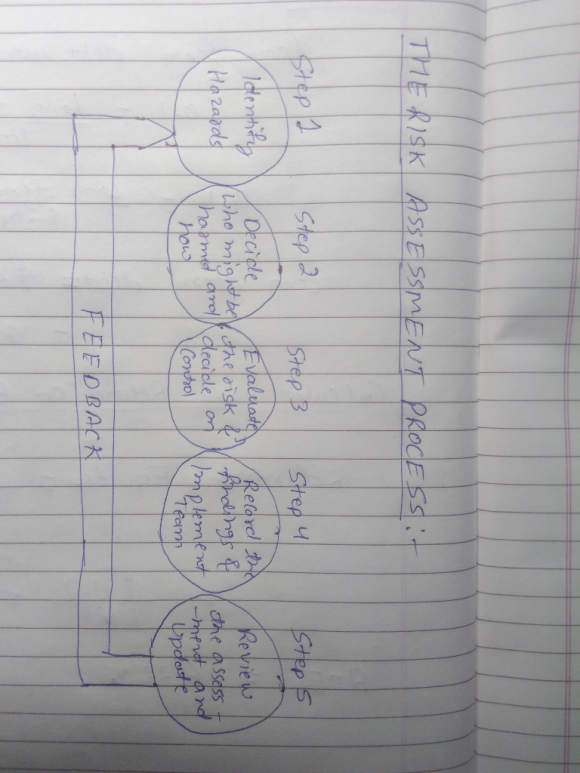 THE RISK ASSESSMENT PROCESS :-
Step 1
Identify
Hazards
Step 2
Decide
who might be
harmed and
how
Step 3
Evaluate
the risk &
decide on
control
Step 4
Record the
findings &
implement
team
Step 5
Review
the assess-
-ment and
Update
FEEDBACK